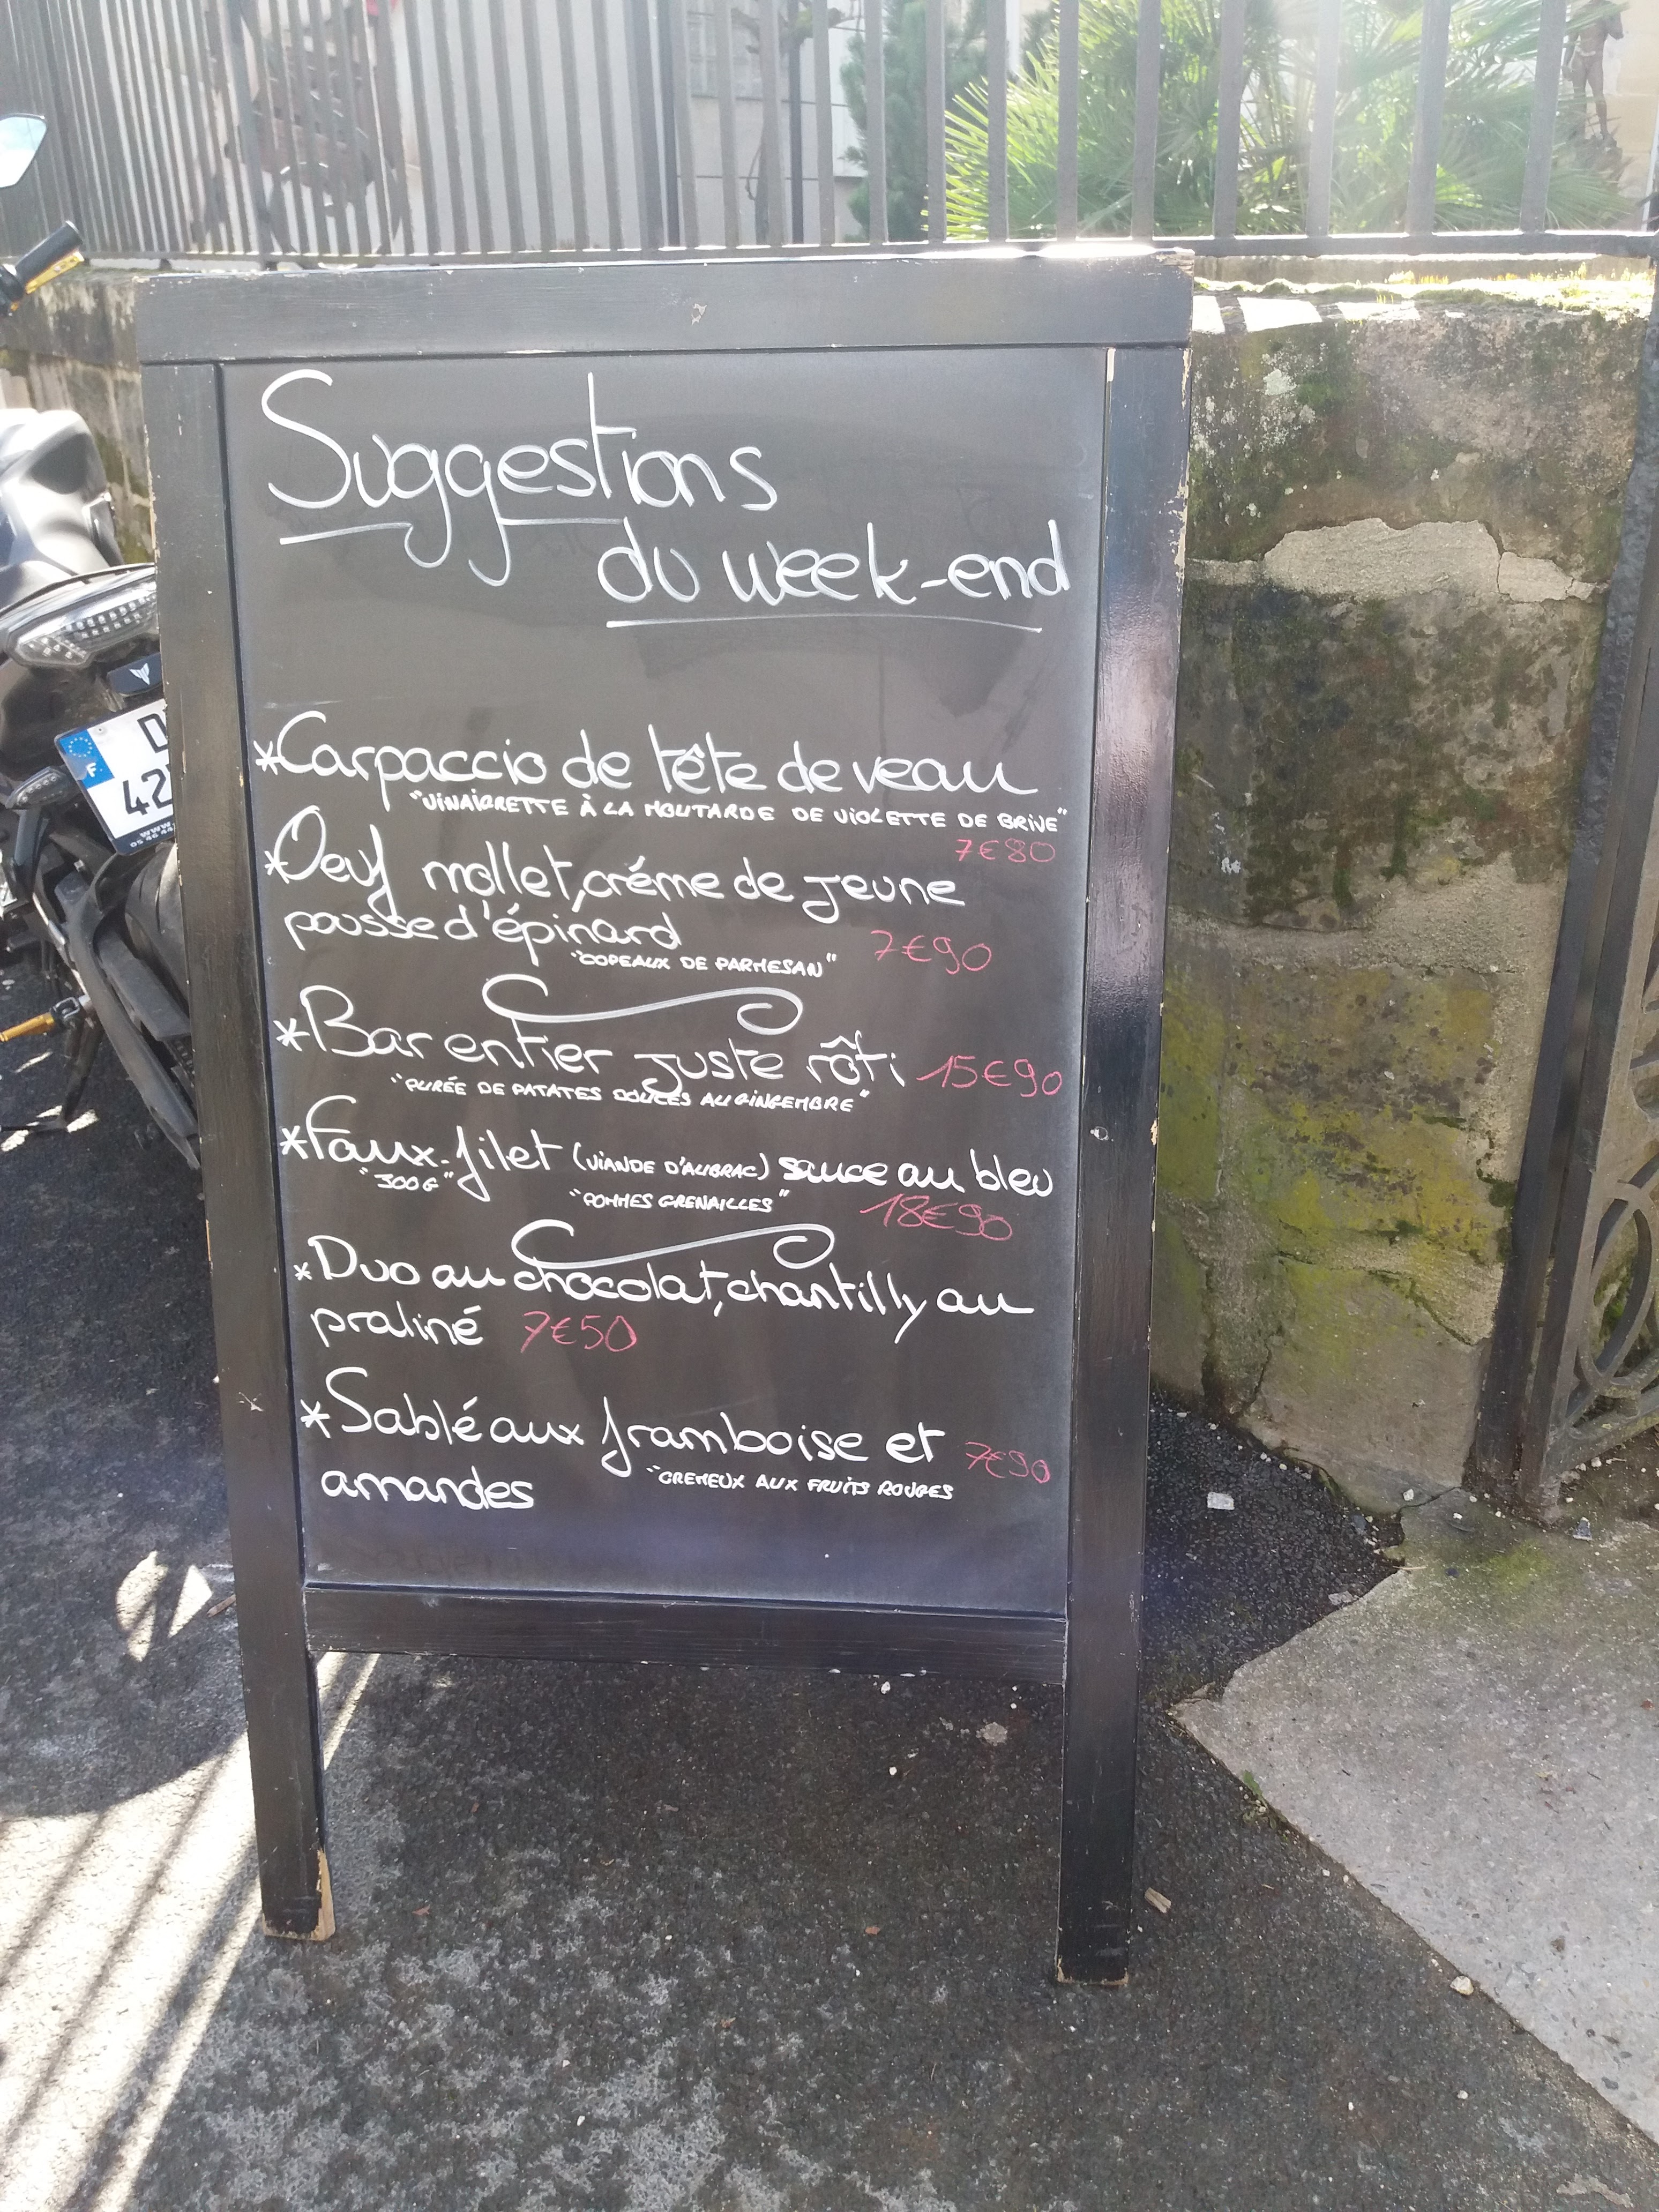 Suggestions
du week-end
*Carpaccio de tête de veau
"VINAIGRETTE À LA MOUTARDE DE VIOLETTE DE BRIVE"
7€80
*Oeuf mollet, créme de jeune
pousse d'épinard 7€90
"COPEAUX DE PARMESAN"
*Bar entier juste rôti 15€90
"PURÉE DE PATATES DOUCES AU GINGEMBRE"
*Faux-filet (VIANDE D'AUBRAC) sauce au bleu
"300G" "POMMES GRENAILLES" 18€90
*Duo au chocolat, chantilly au
praliné 7€50
*Sablé aux framboise et 7€90
"CREMEUX AUX FRUITS ROUGES
amandes
F
D
42